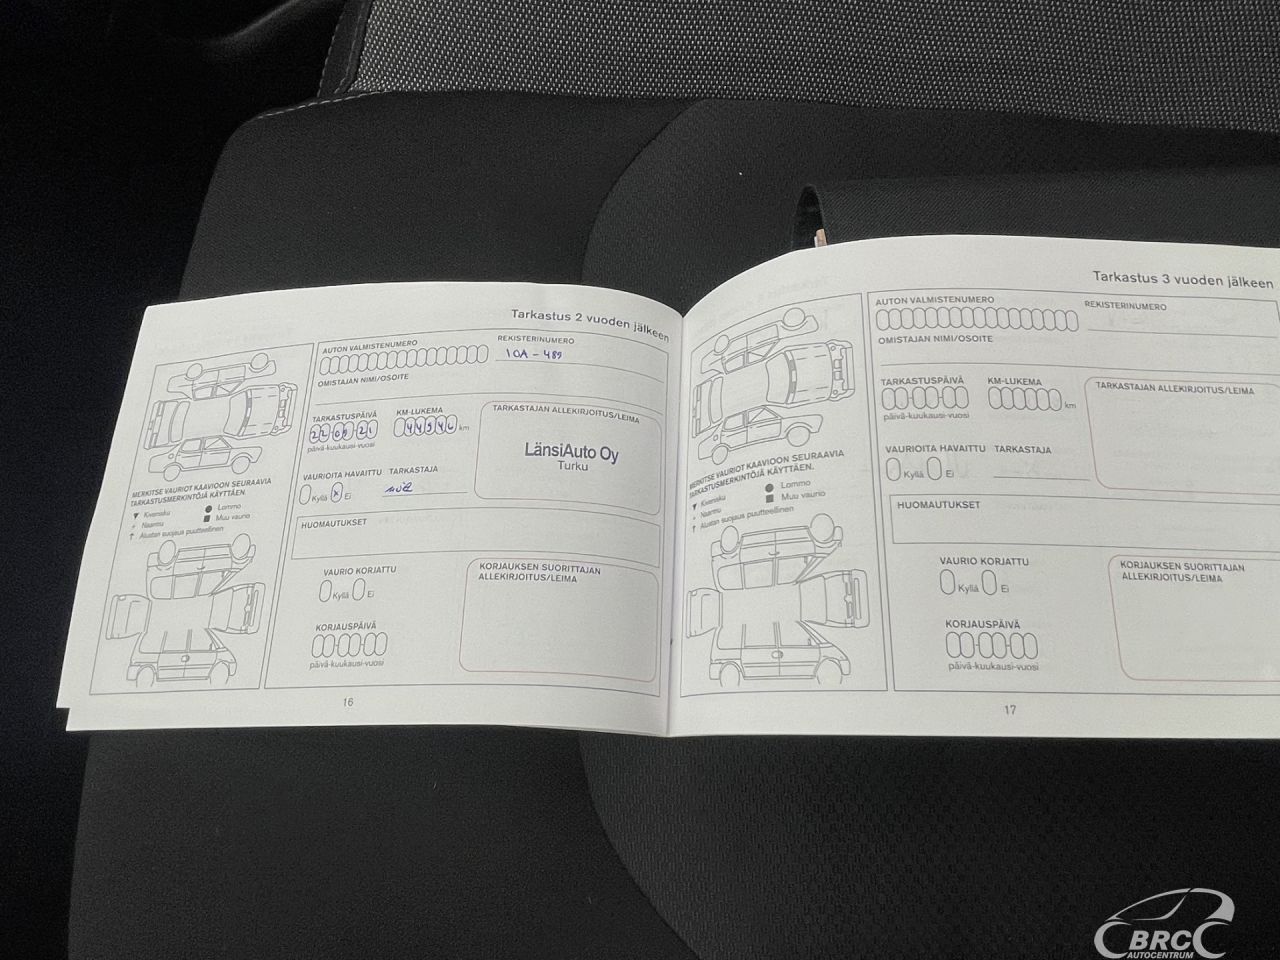 Tarkastus 2 vuoden jälkeen
AUTON VALMISTENUMERO
REKISTERINUMERO
IOA - 489
OMISTAJAN NIMI/OSOITE
TARKASTUSPÄIVÄ
KM-LUKEMA
22 09 21
44546 km
päivä-kuukausi-vuosi
TARKASTAJAN ALLEKIRJOITUS/LEIMA
LänsiAuto Oy
Turku
VAURIOITA HAVAITTU
TARKASTAJA
Kyllä x Ei
MERKITSE VAURIOT KAAVIOON SEURAAVIA
TARKASTUSMERKINTÖJÄ KÄYTTÄEN.
Kivenisku
Lommo
Naarmu
Muu vaurio
Alustan suojaus puutteellinen
HUOMAUTUKSET
VAURIO KORJATTU
Kyllä Ei
KORJAUKSEN SUORITTAJAN
ALLEKIRJOITUS/LEIMA
KORJAUSPÄIVÄ
päivä-kuukausi-vuosi
16
Tarkastus 3 vuoden jälkeen
AUTON VALMISTENUMERO
REKISTERINUMERO
OMISTAJAN NIMI/OSOITE
TARKASTUSPÄIVÄ
KM-LUKEMA
km
päivä-kuukausi-vuosi
TARKASTAJAN ALLEKIRJOITUS/LEIMA
VAURIOITA HAVAITTU
TARKASTAJA
Kyllä Ei
MERKITSE VAURIOT KAAVIOON SEURAAVIA
TARKASTUSMERKINTÖJÄ KÄYTTÄEN.
Kivenisku
Lommo
Naarmu
Muu vaurio
Alustan suojaus puutteellinen
HUOMAUTUKSET
VAURIO KORJATTU
Kyllä Ei
KORJAUKSEN SUORITTAJAN
ALLEKIRJOITUS/LEIMA
KORJAUSPÄIVÄ
päivä-kuukausi-vuosi
17
BRC
AUTOCENTRUM